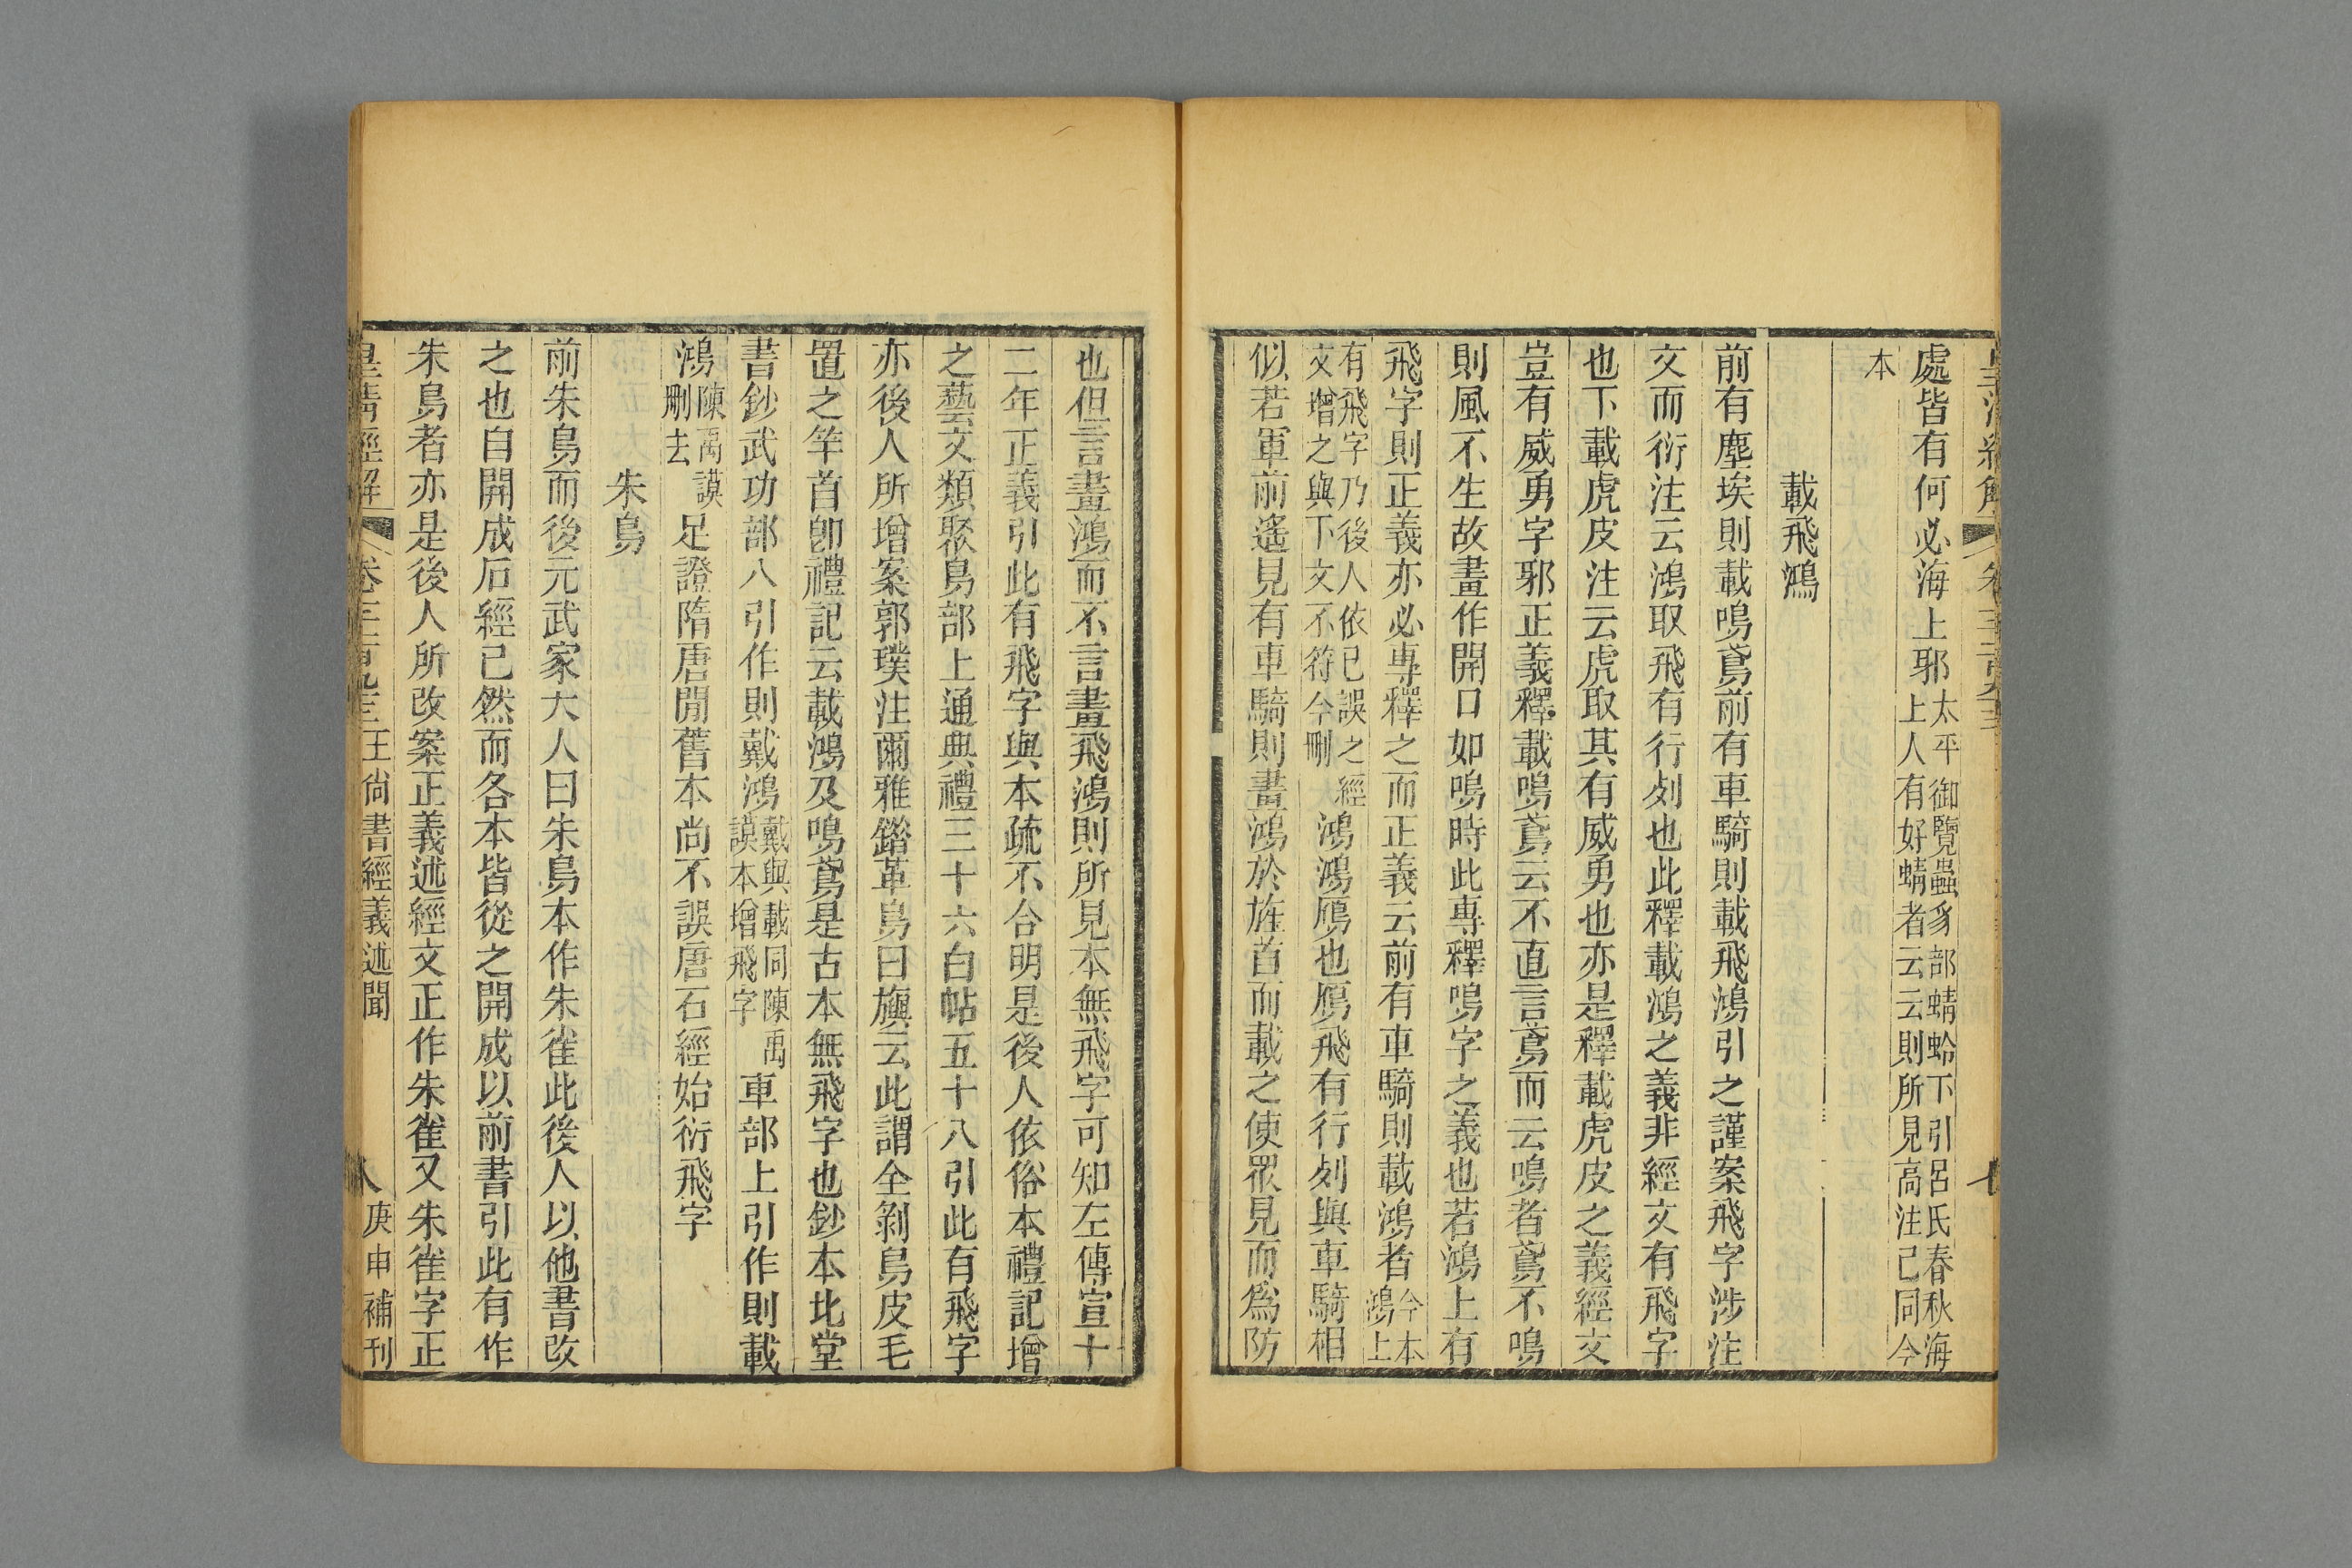 處皆有何必海上邪太平御覽蟲豸部蜻蛉下引呂氏春秋海上人有好蜻者云云則所見高注已同今
本
載飛鴻
前有塵埃則載鳴鳶前有車騎則載飛鴻引之謹案飛字涉注
文而衍注云鴻取飛有行列也此釋載鴻之義非經文有飛字
也下載虎皮注云虎取其有威勇也亦是釋載虎皮之義經文
豈有威勇字邪正義釋載鳴鳶云不直言鳶而云鳴者鳶不鳴
則風不生故畫作開口如鳴時此專釋鳴字之義也若鴻上有
飛字則正義亦必專釋之而正義云前有車騎則載鴻者今本鴻上
有飛字乃後人依已誤之經文增之與下文不符今刪鴻鴻鴈也鴈飛有行列與車騎相
似若軍前遙見有車騎則畫鴻於旌首而載之使眾見而為防
也但言畫鴻而不言畫飛鴻則所見本無飛字可知左傳宣十
二年正義引此有飛字與本疏不合明是後人依俗本禮記增
之藝文類聚鳥部上通典禮三十六白帖五十八引此有飛字
亦後人所增案郭璞注爾雅錯革鳥曰旟云此謂全剝鳥皮毛
置之竿首卽禮記云載鴻及鳴鳶是古本無飛字也鈔本北堂
書鈔武功部八引作則戴鴻戴與載同陳禹謨本增飛字車部上引作則載
鴻陳禹謨刪去足證隋唐閒舊本尚不誤唐石經始衍飛字
朱鳥
前朱鳥而後元武家大人曰朱鳥本作朱雀此後人以他書改
之也自開成石經已然而各本皆從之開成以前書引此有作
朱鳥者亦是後人所改案正義述經文正作朱雀又朱雀字正
皇清經解 王尚書經義述聞 八 庚申補刊